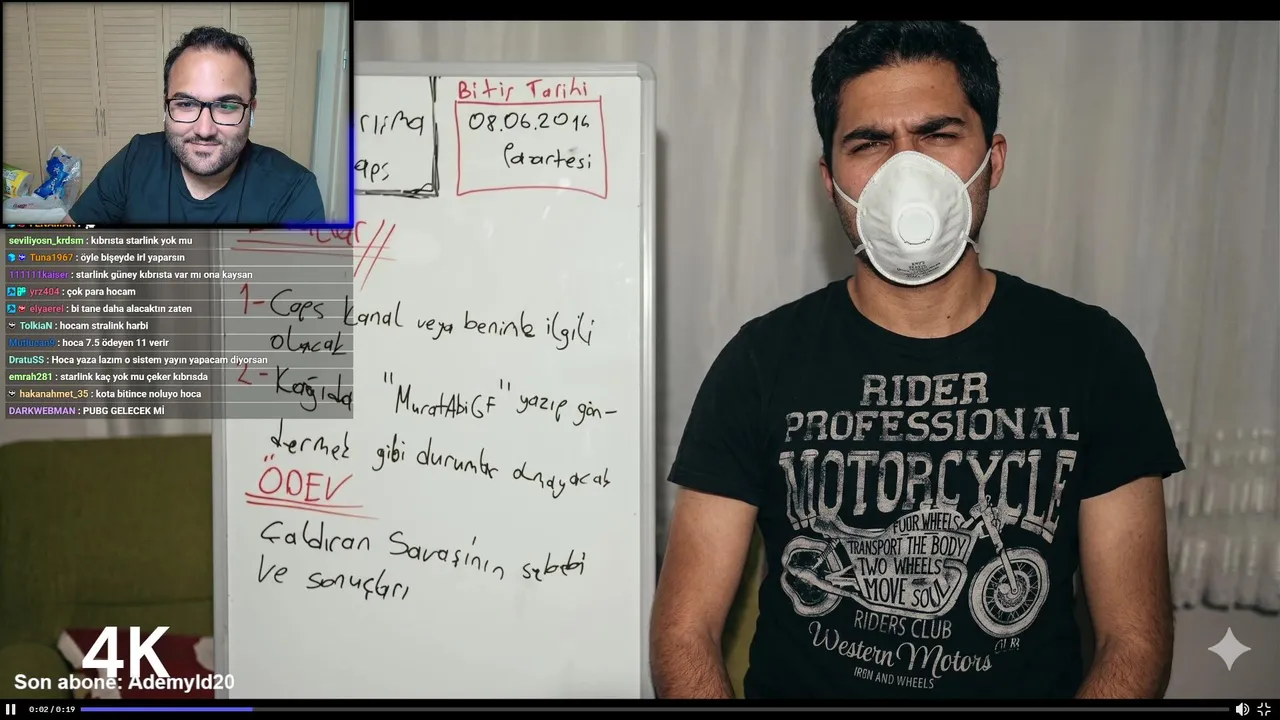 seviliyosn_krdsm : kıbrısta starlink yok mu
Tuna1967 : öyle bişeyde irl yaparsın
111111kaiser : starlink güney kıbrısta var mı ona kaysan
yrz404 : çok para hocam
elyaerel : bi tane daha alacaktın zaten
TolkiaN : hocam stralink harbi
: hoca 7.5 ödeyen 11 verir
DratuSS : Hoca yaza lazım o sistem yayın yapacam diyorsan
emrah281 : starlink kaç yok mu çeker kıbrısda
hakanahmet_35 : kota bitince noluyo hoca
DARKWEBMAN : PUBG GELECEK Mİ
Bitiş Tarihi
08.06.2014
Pazartesi
aps
1- Caps kanal veya benimle ilgili
olacak
2- Kağıda "MuratAbiGF" yazıp gön-
dermek gibi durumlar olmayacak
ÖDEV
Çaldıran Savaşının sebebi
ve sonuçları
RIDER
PROFESSIONAL
MOTORCYCLE
FOUR WHEELS
TRANSPORT THE BODY
TWO WHEELS
MOVE SOUL
RIDERS CLUB
Western Motors
IRON AND WHEELS
4K
Son abone: AdemyId20
0:02 / 0:19